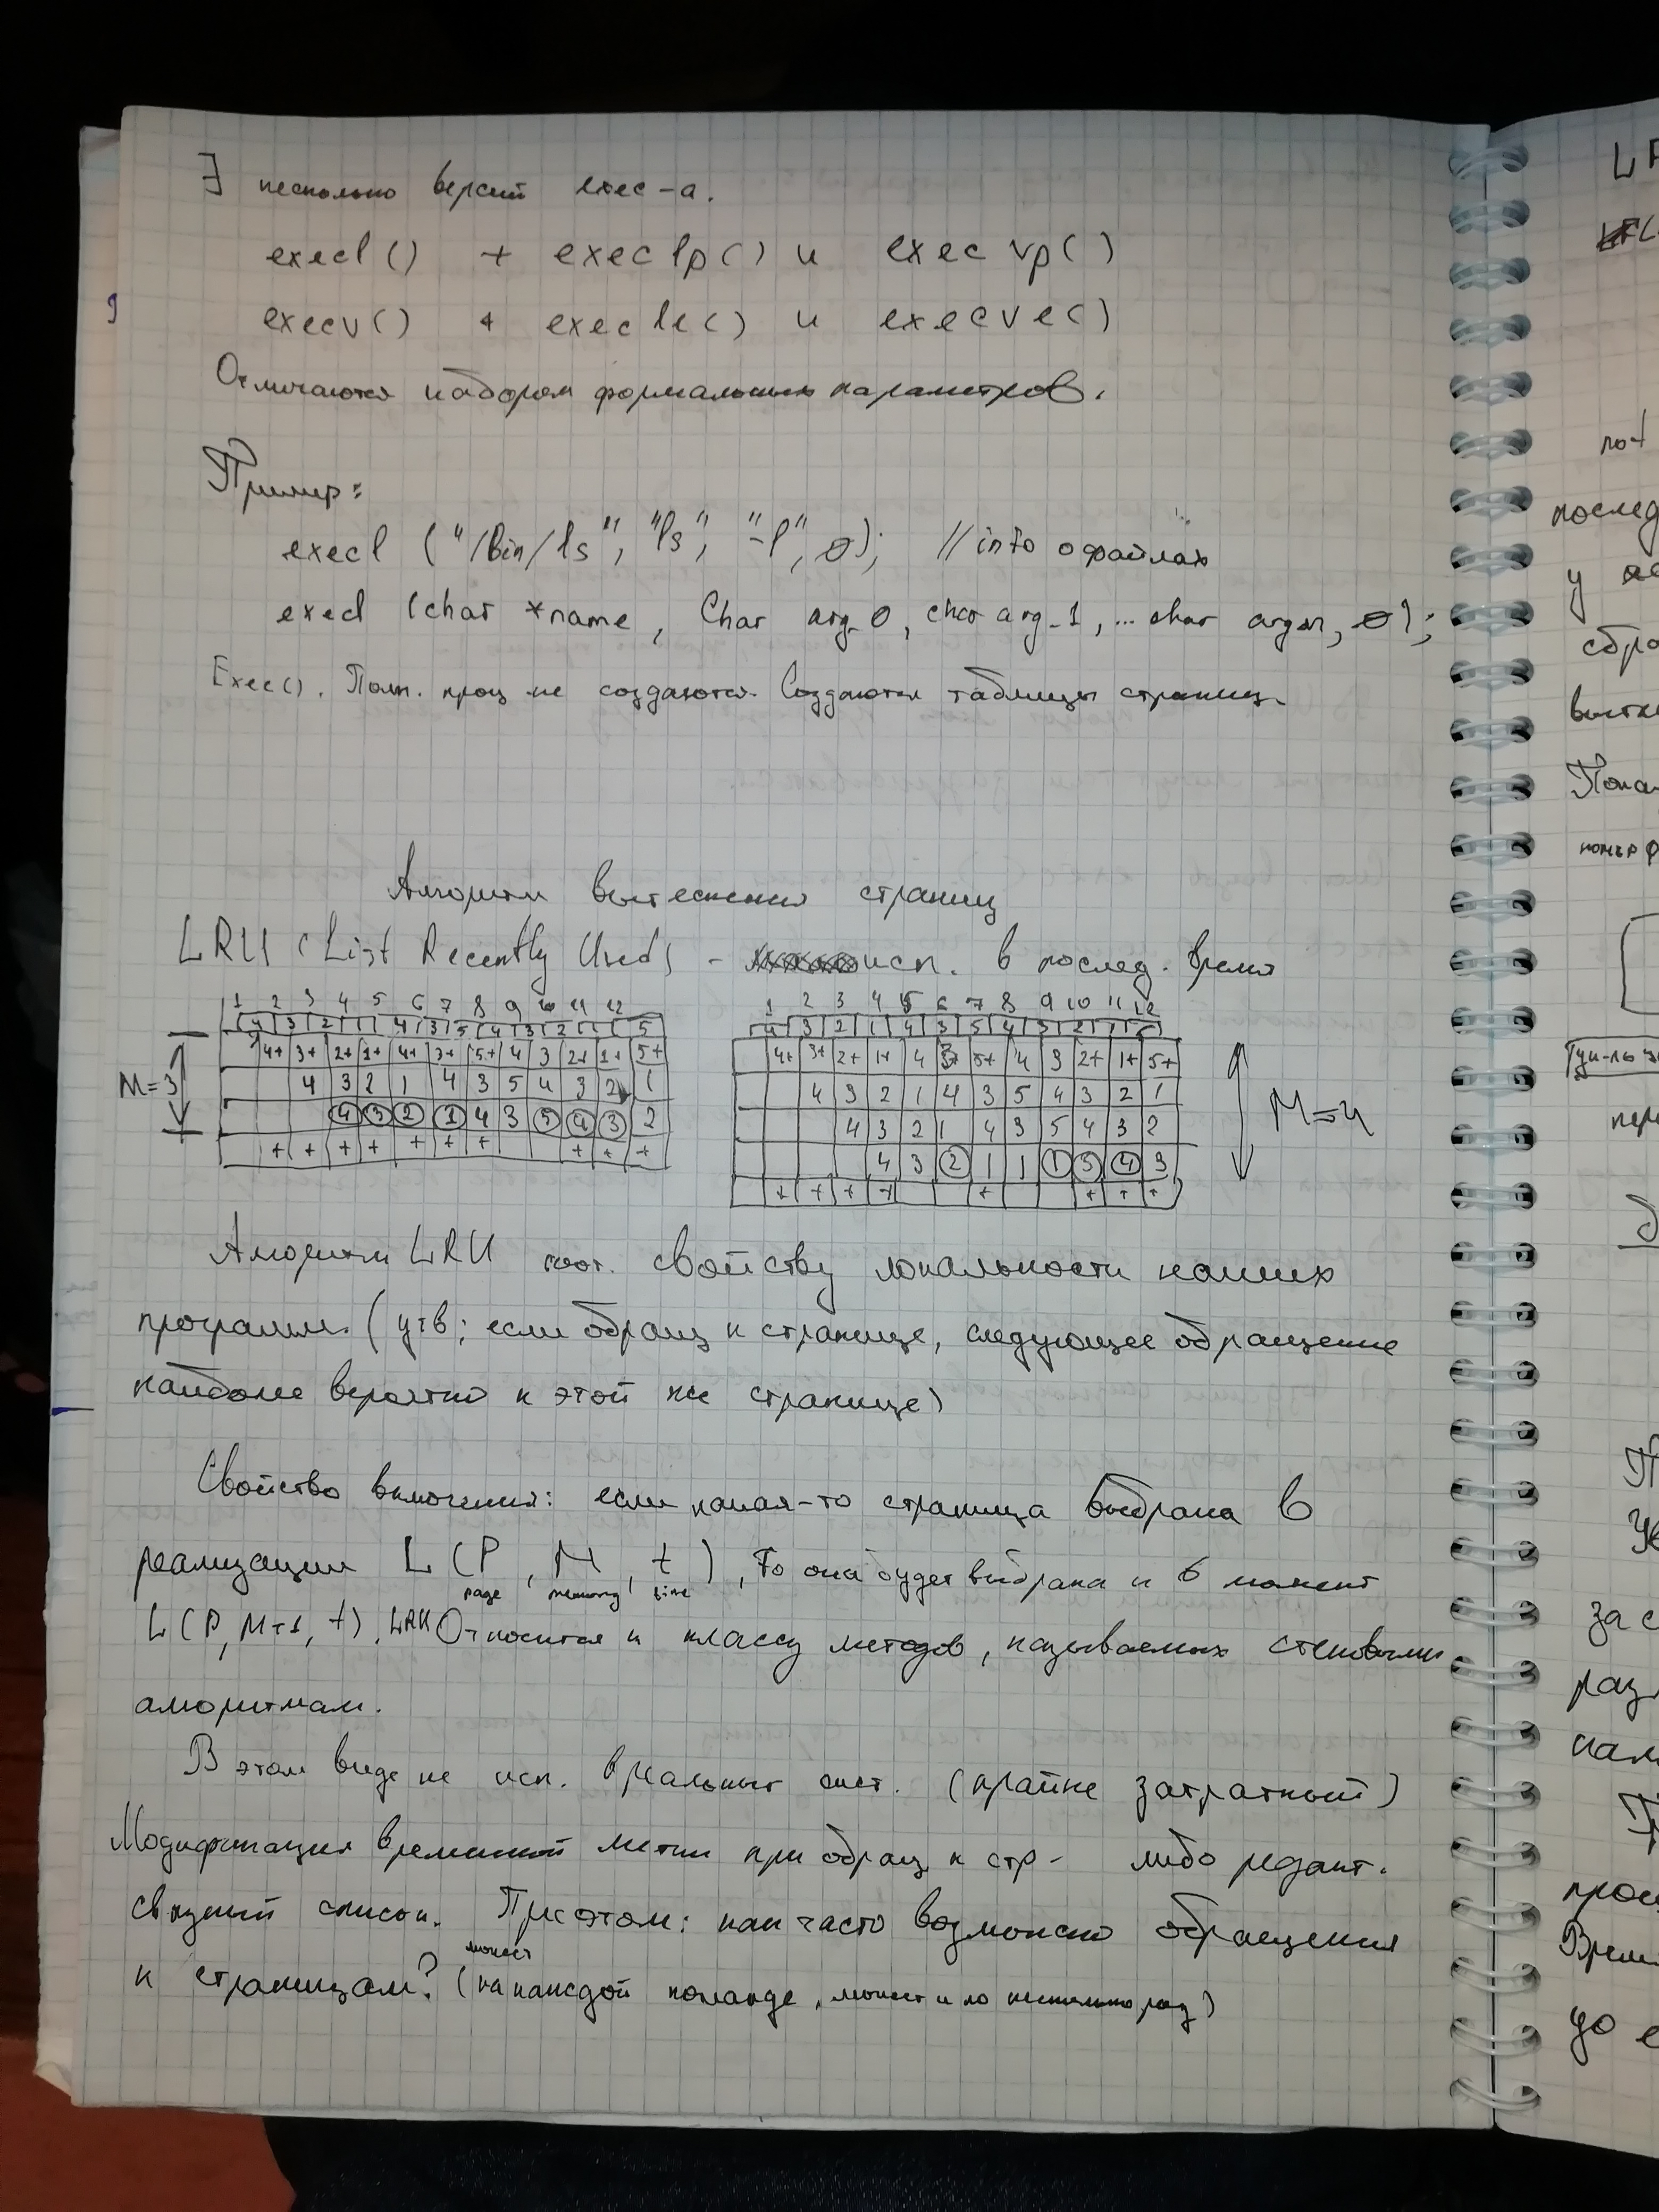 ∃ несколько версий exec-а.
execl() + execlp() и execvp()
execv() + execle() и execvec()
Отличаются набором формальных параметров.
Пример:
execl ("/bin/ls", "ls", "-l", 0); // info о файлах
execl (char *name, Char arg_0, char arg_1, ... char argn, 0);
Exec(). Полн. проц не создаются. Создаются таблицы страниц.
Алгоритм вытеснения страниц
LRU (List Recently Used) - исп. в послед. время
1 2 3 4 5 6 7 8 9 10 11 12
4 3 2 1 4 3 5 4 3 2 1 5
4+ 3+ 2+ 1+ 4+ 3+ 5+ 4 3 2+ 1+ 5+
M=3
4 3 2 1 4 3 5 4 3 2 1
4 3 2 1 4 3 5 4 3 2
+ + + + + + + + + +
1 2 3 4 5 6 7 8 9 10 11 12
4 3 2 1 4 3 5 4 3 2 1 5
4+ 3+ 2+ 1+ 4 3 5+ 4 3 2+ 1+ 5+
4 3 2 1 4 3 5 4 3 2 1
4 3 2 1 4 3 5 4 3 2
4 3 2 1 1 1 5 4 3
+ + + + + + + +
M=4
Алгоритм LRU соот. свойству локальности наших
программ. (утв: если обращ к странице, следующее обращение
наиболее вероятно к этой же странице)
Свойство включения: если какая-то страница выбрана в
реализации L (P, M, t), то она будет выбрана и в момент
page memory time
L(P, M+1, t). LRU Относится к классу методов, называемых стековыми
алгоритмам.
В этом виде не исп. в реальных сист. (крайне затратный)
Модификация временной метки при обращ к стр- либо редакт.
связный список. При этом: как часто возможно обращения
к страницам? (может на каждой команде, может и по несколько раз)